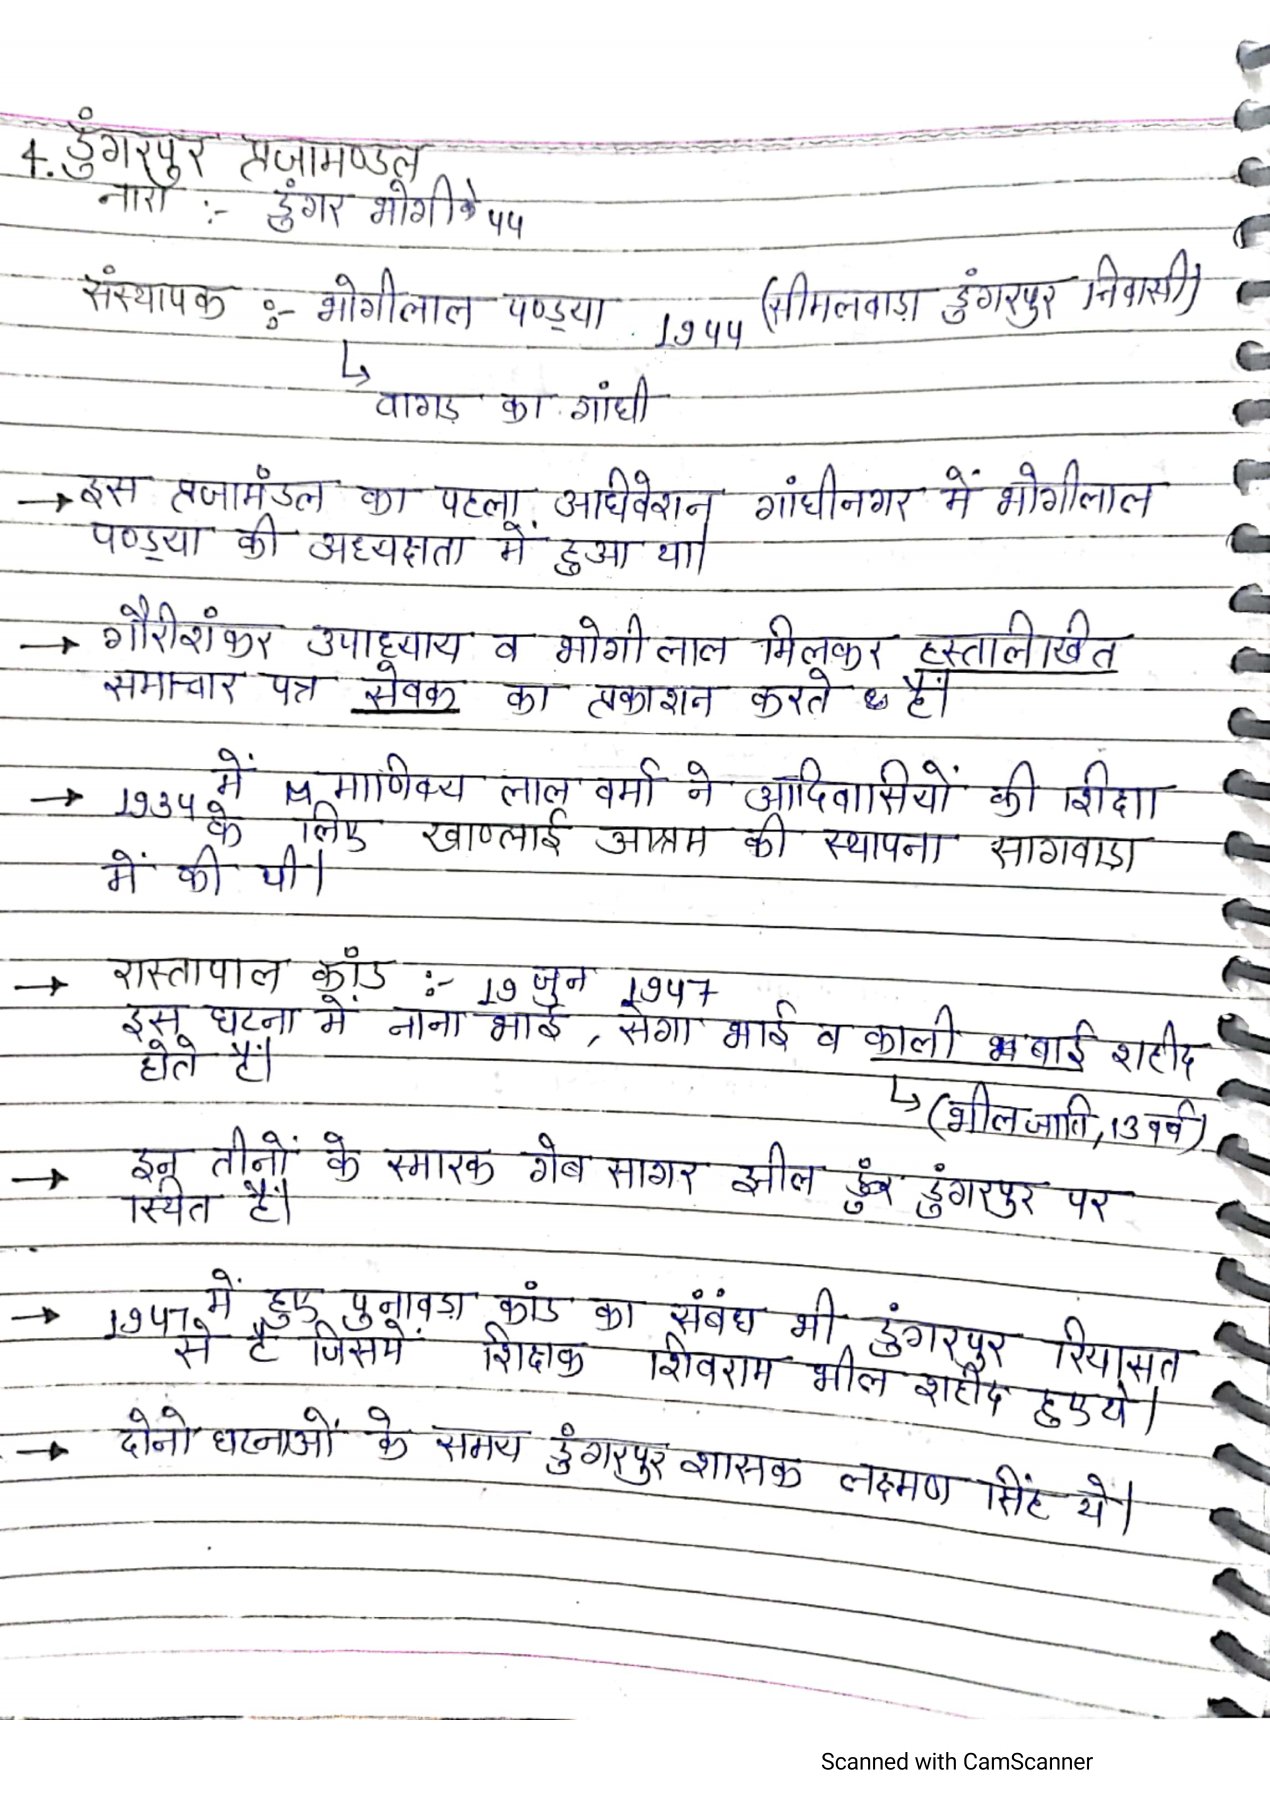 4. डुंगरपुर प्रजामण्डल
नारा :- डुंगर भोगी के 44
संस्थापक :- भोगीलाल पण्ड्या 1944 (सीमलवाड़ा डुंगरपुर निवासी)
↳
वागड़ का गांधी
→ इस प्रजामंडल का पहला अधिवेशन गांधीनगर में भोगीलाल
पण्ड्या की अध्यक्षता में हुआ था।
→ गौरीशंकर उपाध्याय व भोगीलाल मिलकर हस्तालिखित
समाचार पत्र सेवक का प्रकाशन करते हैं।
→ 1934 में माणिक्य लाल वर्मा ने आदिवासियों की शिक्षा
के लिए खाण्लाई आश्रम की स्थापना सागवाड़ा
में की थी।
→ रास्तापाल कांड :- 19 जुन 1947
इस घटना में नाना भाई, सेंगा भाई व काली बाई शहीद
होते हैं।
↳ (भील जाति, 13 वर्ष)
→ इन तीनों के स्मारक गेब सागर झील डुंगरपुर पर
स्थित हैं।
→ 1947 में हुए पुनावड़ा कांड का संबंध भी डुंगरपुर रियासत
से है जिसमें शिक्षक शिवराम भील शहीद हुए थे।
→ दोनो घटनाओं के समय डुंगरपुर शासक लक्ष्मण सिंह थे।
Scanned with CamScanner